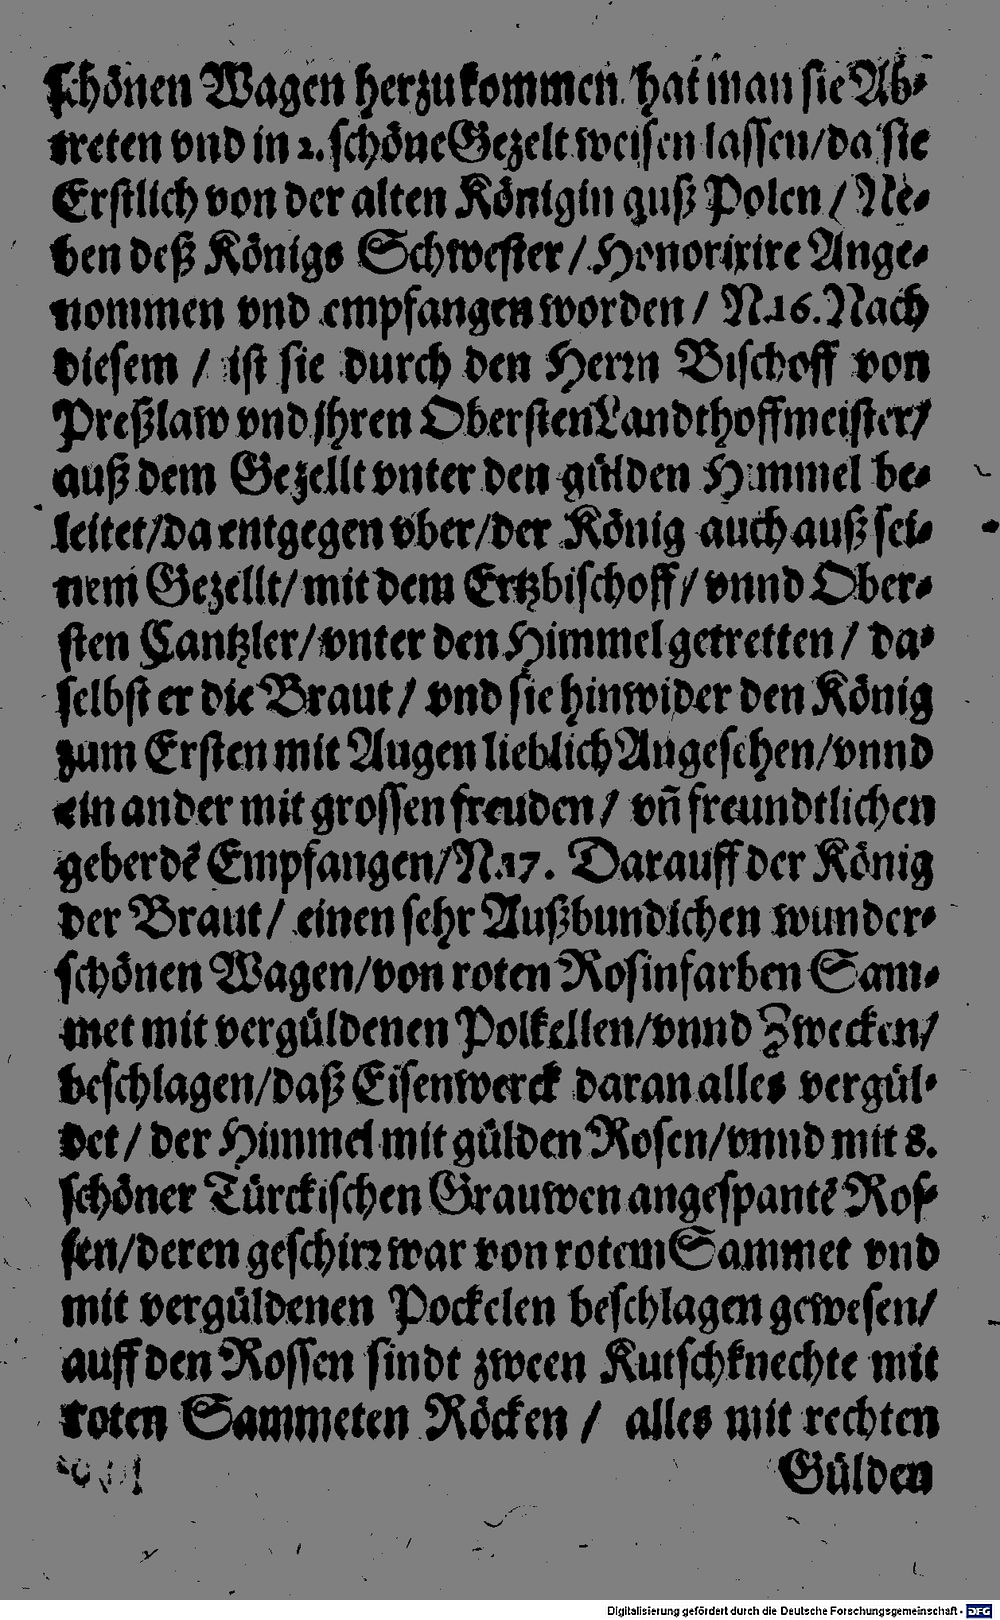 schönen Wagen herzukommen hat man sie Ab-
treten vnd in 2. schöne Gezelt weisen lassen/da sie
Erstlich von der alten Königin auß Polen / Ne-
ben deß Königs Schwester / Honorixire Ange-
nommen vnd empfangen worden / N.16. Nach
diesem / ist sie durch den Herrn Bischoff von
Preßlaw vnd jhren Obersten Landthoffmeister/
auß dem Gezellt vnter den gülden Himmel be-
leitet/da entgegen vber/der König auch auß sei-
nem Gezellt/ mit dem Ertzbischoff/ vnnd Ober-
sten Cantzler/vnter den Himmel getretten / da-
selbst er die Braut / vnd sie hinwider den König
zum Ersten mit Augen lieblich Angesehen/vnnd
ein ander mit grossen freuden / vñ freundtlichen
geberdẽ Empfangen/N.17. Darauff der König
der Braut / einen sehr Außbundichen wunder-
schönen Wagen/von roten Rosinfarben Sam-
met mit vergüldenen Polkellen/vnnd Zwecken/
beschlagen/daß Eisenwerck daran alles vergül-
det / der Himmel mit gülden Rosen/vnnd mit 8.
schöner Türckischen Grauwen angespantẽ Ros-
sen/deren geschirr war von rotem Sammet vnd
mit vergüldenen Pockelen beschlagen gewesen/
auff den Rossen sindt zween Kutschknechte mit
roten Sammeten Röcken / alles mit rechten
Gülden
Digitalisierung gefördert durch die Deutsche Forschungsgemeinschaft - DFG